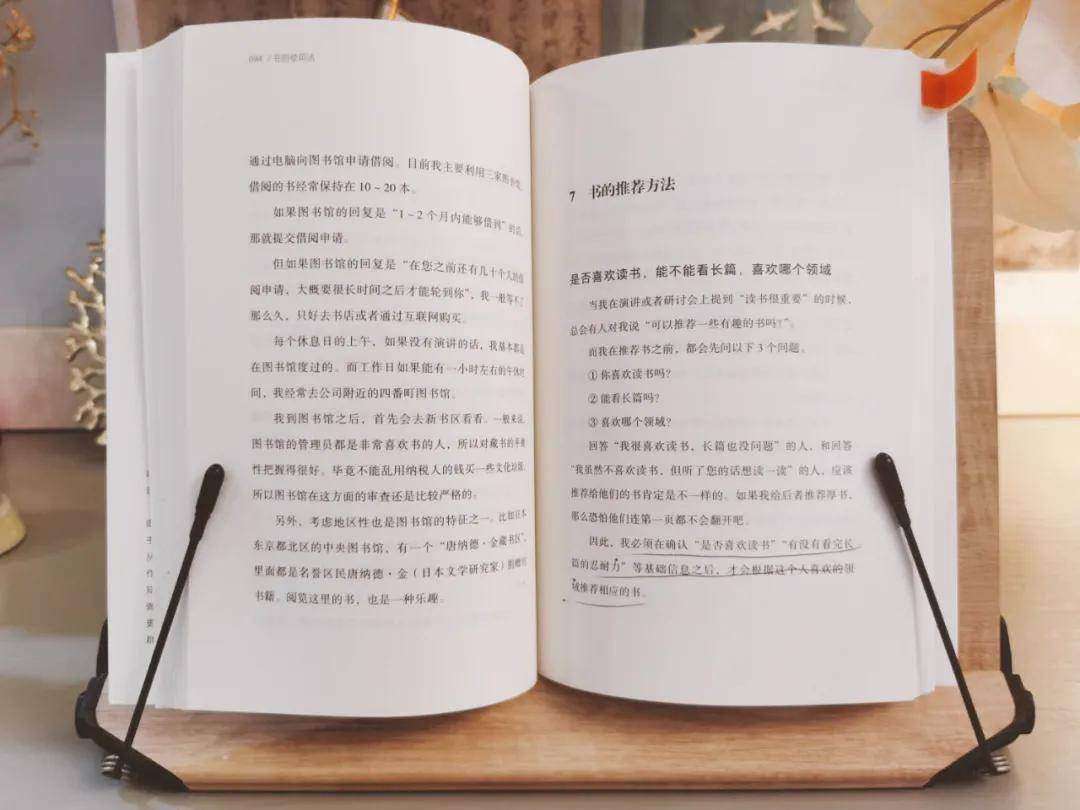 094 / 书的使用法
通过电脑向图书馆申请借阅。目前我主要利用三家图书馆,
借阅的书经常保持在 10 ~ 20 本。
如果图书馆的回复是“1 ~ 2 个月内能够借到”的话,
那就提交借阅申请。
但如果图书馆的回复是“在您之前还有几十个人的借
阅申请,大概要很长时间之后才能轮到你”,我一般等不了
那么久,只好去书店或者通过互联网购买。
每个休息日的上午,如果没有演讲的话,我基本都是
在图书馆度过的。而工作日如果能有一小时左右的午休时
间,我经常去公司附近的四番町图书馆。
我到图书馆之后,首先会去新书区看看。一般来说,
图书馆的管理员都是非常喜欢书的人,所以对藏书的平衡
性把握得很好。毕竟不能乱用纳税人的钱买一些文化垃圾,
所以图书馆在这方面的审查还是比较严格的。
另外,考虑地区性也是图书馆的特征之一。比如日本
东京都北区的中央图书馆,有一个“唐纳德·金藏书区”,
里面都是名誉区民唐纳德·金(日本文学研究家)捐赠的
书籍。阅览这里的书,也是一种乐趣。
7 书的推荐方法
是否喜欢读书,能不能看长篇,喜欢哪个领域
当我在演讲或者研讨会上提到“读书很重要”的时候,
总会有人对我说“可以推荐一些有趣的书吗?”。
而我在推荐书之前,都会先问以下 3 个问题。
① 你喜欢读书吗?
② 能看长篇吗?
③ 喜欢哪个领域?
回答“我很喜欢读书,长篇也没问题”的人,和回答
“我虽然不喜欢读书,但听了您的话想读一读”的人,应该
推荐给他们的书肯定是不一样的。如果我给后者推荐厚书,
那么恐怕他们连第一页都不会翻开吧。
因此,我必须在确认“是否喜欢读书”“有没有看完长
篇的忍耐力”等基础信息之后,才会根据这个人喜欢的领
域推荐相应的书。